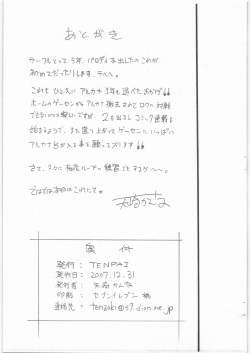 あとがき
サークルとって5年、パロディ本出したのこれが
初めてだったりします、テヘヘ。
これもひとえにアルカナ1年も遊べたおかげ!!
ホームのゲーセンからアルカナ撤去されてロケの対戦
できないのは寂しいですが、2を出るしコミック連載も
始まるようで、また盛り上がってゲーセンに いっぱい
アルカナ台が入る事を願っております!!
さて、スクに
ではでは次回はこのへんで。
奥付
発行: TENPAI
発行日: 2007.12.31
発行者: 天崎かんな
印刷: セブンイレブン 様
連絡先: tenzaki@s7.dion.ne.jp